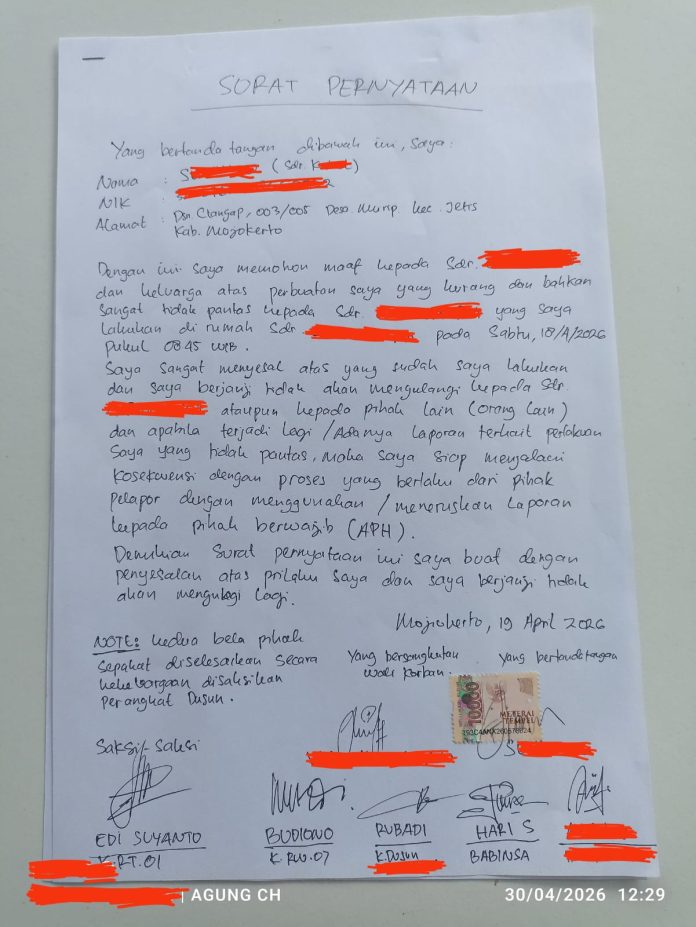 SURAT PERNYATAAN
Yang bertanda tangan dibawah ini, saya:
Nama : S (Sdr. K )
NIK : 2
Alamat : Dsn Ctangap, 003/005 Desa. Murip kec. Jetis
Kab. Mojokerto
Dengan ini saya memohon maaf kepada Sdr.
dan keluarga atas perbuatan saya yang kurang dan bahkan
sangat tidak pantas kepada Sdr. yang saya
lakukan di rumah Sdr. pada Sabtu, 18/4/2026
Pukul 0845 WIB.
Saya sangat menyesal atas yang sudah saya lakukan
dan saya berjanji tidak akan mengulangi kepada Sdr.
ataupun kepada pihak lain (orang lain)
dan apabila terjadi lagi / Adanya laporan terkait perlakuan
Saya yang tidak pantas, maka saya siap menjalani
kosekwensi dengan proses yang berlaku dari pihak
pelapor dengan menggunakan / meneruskan Laporan
kepada pihak berwajib (APH).
Demikian Surat pernyataan ini saya buat dengan
penyesalan atas prilaku saya dan saya berjanji tidak
akan mengulagi lagi.
Mojokerto, 19 April 2026
NOTE: kedua bela pihak
sepakat diselesaikan secara
kekeluargaan disaksikan
Perangkat Dusun.
Yang bersangkutan
Wali korban
yang bertandatangan
10000
METERAI
TEMPEL
S
Saksi-Saksi
EDI SUYANTO
K.RT.01
BUDIONO
K.RW.07
RUBADI
K.Dusun
HARI S
BABINSA
| AGUNG CH
30/04/2026 12:29